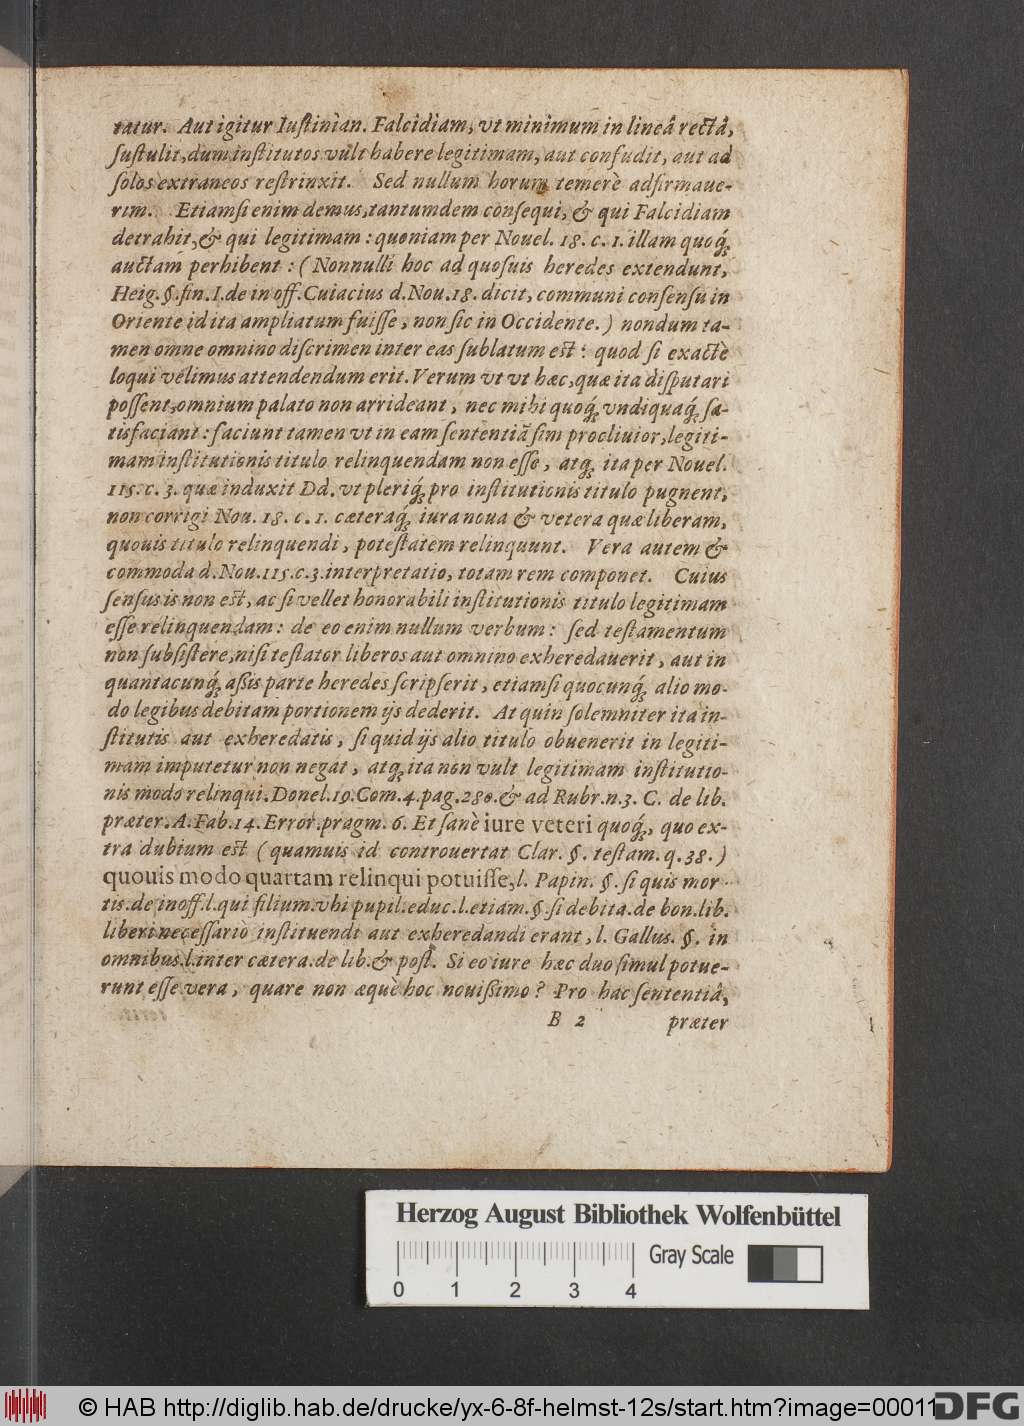 tatur. Aut igitur Iuſtinian. Falcidiam, vt minimum in lineâ rectâ,
ſuſtulit, dum inſtitutos vult habere legitimam, aut confudit, aut ad
ſolos extraneos reſtrinxit. Sed nullum horum temerè adfirmaue-
rim. Etiamſi enim demus, tantumdem conſequi, & qui Falcidiam
detrahit, & qui legitimam: quoniam per Nouel. 18. c. 1. illam quoq́;
auctam perhibent: (Nonnulli hoc ad quoſuis heredes extendunt,
Heig. §. fin. I. de inoff. Cuiacius d. Nou. 18. dicit, communi conſenſu in
Oriente id ita ampliatum fuiſſe, non ſic in Occidente.) nondum ta-
men omne omnino diſcrimen inter eas ſublatum eſt: quod ſi exactè
loqui velimus attendendum erit. Verum vt vt hæc, quæ ita diſputari
poſſent, omnium palato non arrideant, nec mihi quoq́; vndiquaq́; ſa-
tisfaciant: faciunt tamen vt in eam ſententiã ſim procliuior, legiti-
mam inſtitutionis titulo relinquendam non eſſe, atq́; ita per Nouel.
115. c. 3. quæ induxit Dd. vt pleriq́; pro inſtitutionis titulo pugnent,
non corrigi Nou. 18. c. 1. cæteraq́; iura noua & vetera quæ liberam,
quouis titulo relinquendi, poteſtatem relinquunt. Vera autem &
commoda d. Nou. 115. c. 3. interpretatio, totam rem componet. Cuius
ſenſus is non eſt, ac ſi vellet honorabili inſtitutionis titulo legitimam
eſſe relinquendam: de eo enim nullum verbum: ſed teſtamentum
non ſubſiſtere, niſi teſtator liberos aut omnino exheredauerit, aut in
quantacunq́; aſſis parte heredes ſcripſerit, etiamſi quocunq́; alio mo-
do legibus debitam portionem ijs dederit. At quin ſolemniter ita in-
ſtitutis aut exheredatis, ſi quid ijs alio titulo obuenerit in legiti-
mam imputetur non negat, atq́; ita non vult legitimam inſtitutio-
nis modo relinqui. Donel. 19. Com. 4. pag. 280. & ad Rubr. n. 3. C. de lib.
præter. A. Fab. 14. Error. pragm. 6. Et ſanè iure veteri quoq́;, quo ex-
tra dubium eſt (quamuis id controuertat Clar. §. teſtam. q. 38.)
quouis modo quartam relinqui potuiſſe, l. Papin. §. ſi quis mor-
tis. de inoff. l. qui filium. vbi pupil. educ. l. etiam. §. ſi debita. de bon. lib.
liberi neceſſario inſtituendi aut exheredandi erant, l. Gallus. §. in
omnibus. l. inter cætera. de lib. & poſt. Si eo iure hæc duo ſimul potue-
runt eſſe vera, quare non æquè hoc nouiſſimo? Pro hac ſententiâ,
B 2 præter
Herzog August Bibliothek Wolfenbüttel
Gray Scale
0 1 2 3 4
© HAB http://diglib.hab.de/drucke/yx-6-8f-helmst-12s/start.htm?image=00011
DFG